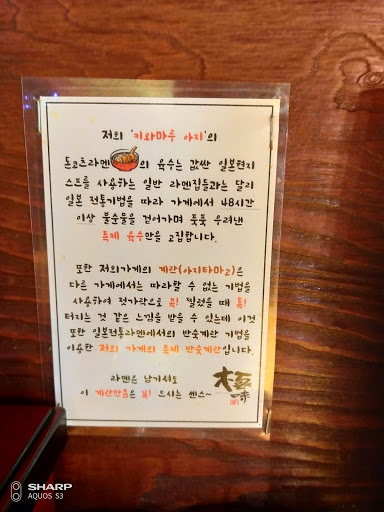 저의 '키와마루 아지'의
돈코츠라멘의 육수는 값싼 일본현지
스프를 사용하는 일반 라멘집들과는 달리
일본 전통기법을 따라 가게에서 48시간
이상 불순물을 걷어가며 푹푹 우려낸
특제 육수만을 고집합니다.
또한 저의가게의 계란(아지타마고)은
다른 가게에서는 따라할 수 없는 기법을
사용하여 젓가락으로 콕! 찔렀을 때 톡!
터지는 것 같은 느낌을 받을 수 있는데 이것
또한 일본전통라멘에서의 반숙계란 기법을
이용한 저의 가게의 특제 반숙계란입니다.
라멘은 남기셔도
이 계란만큼은 꼭! 드시는 센스~
極味
SHARP
AQUOS S3